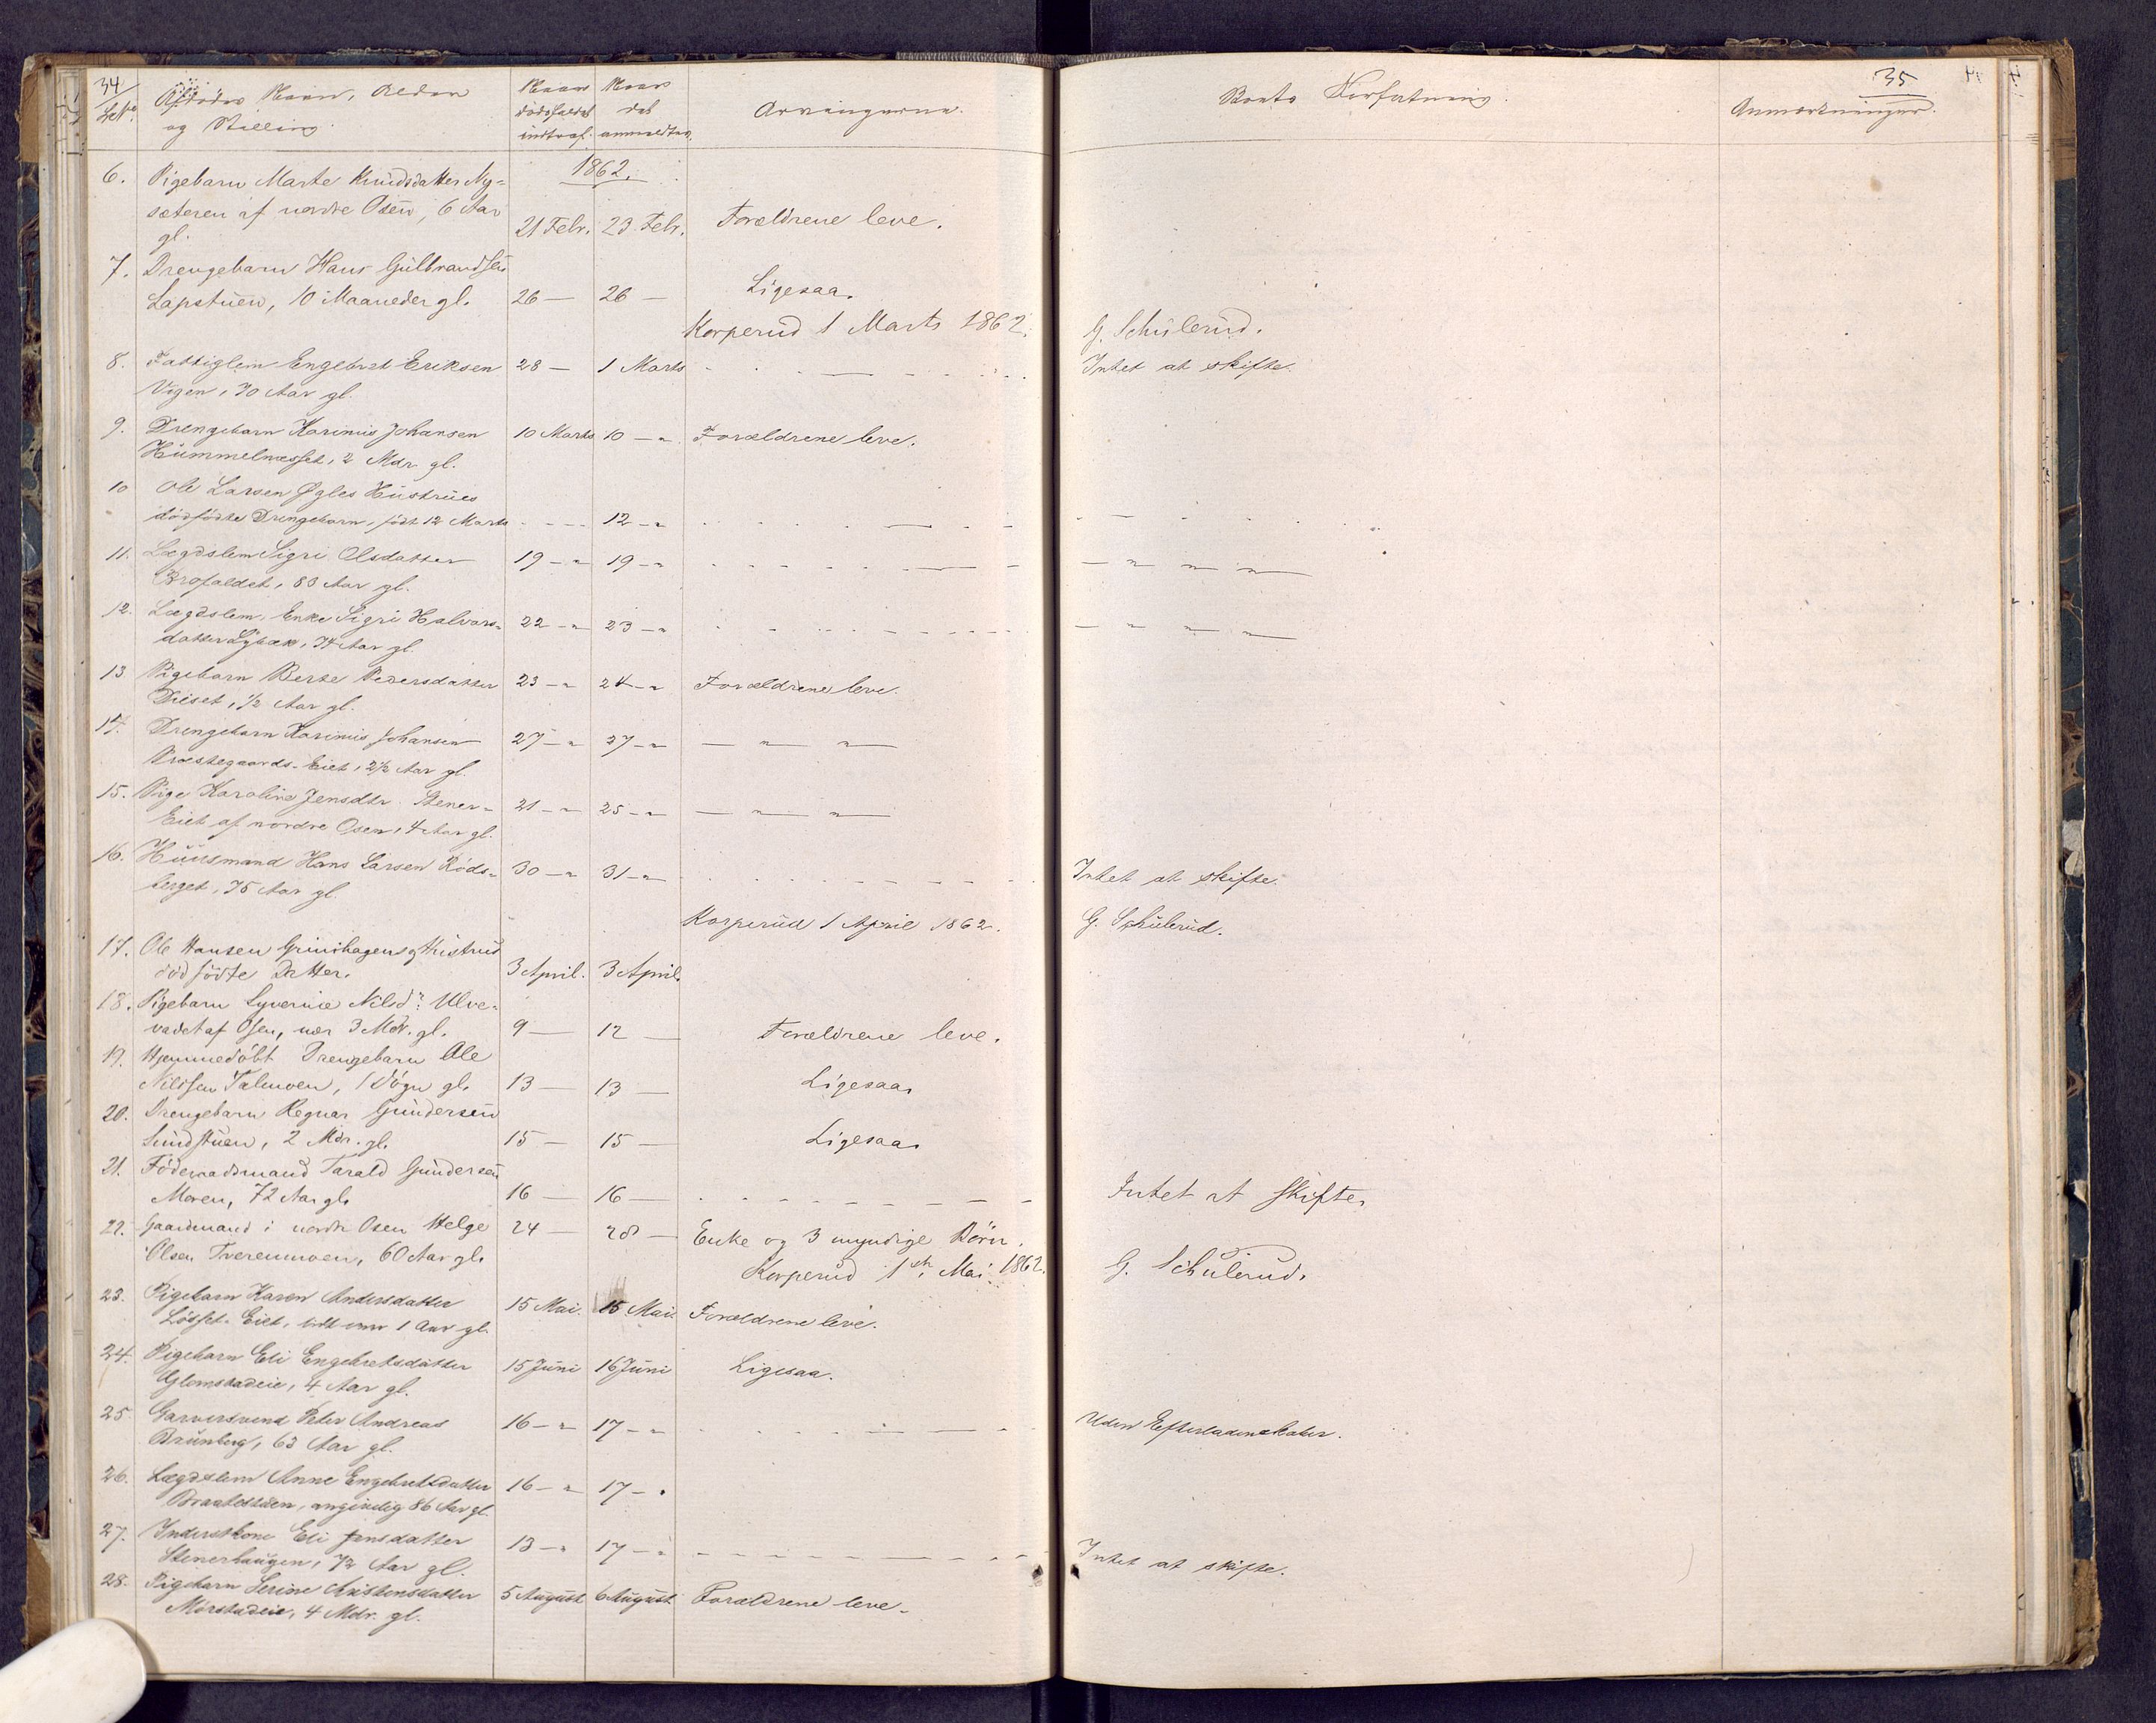 34
Afdødes Navn, Alder
og Stilling.
Naar
dødsfaldet
indtraf.
Naar
det
anmeldtes.
Arvingerne.
Boets Forfatning.
35
Anmærkninger.
1862.
6. Pigebarn Marte Knudsdatter Ny-
sæteren af nordre Osen, 6 Aar
gl. 21 Febr. 23 Febr. Forældrene leve.
7. Drengebarn Hans Gulbrandsen
Lapstuen, 10 Maaneder gl. 26 — 26 — Ligesaa.
Korperud 1 Marts 1862. G. Schulerud.
8. Fattiglem Engebret Eriksen 28 — 1 Marts Intet at skifte.
Vogen, 70 Aar gl.
9. Drengebarn Karinus Johansen 10 Marts 10 — " Forældrene leve.
Hummelnæsset, 2 Mdr. gl.
10 Ole Larsen Øgles Hustrues
dødfødte Drengebarn, født 12 Marts 12 — "
11. Lægdslem Sigri Olsdatter 19 — " 19 — " — " " " —
Brofaldet, 83 Aar gl.
12. Lægdslem, Enke Sigri Halvors- 22 — " 23 — " — " " " —
datter Lybæk, 74 Aar gl.
13 Pigebarn Berte Pedersdatter 23 — " 24 — " Forældrene leve.
Deiset, 1/2 Aar gl.
14. Drengebarn Karinus Johansen 27 — " 27 — " — " — " —
Præstegaards-Eiet, 2 1/2 Aar gl.
15. Pige Karoline Jensdtr. Stener- 21 — " 25 — " — " — " —
Eiet af nordre Osen, 4 Aar gl.
16. Huusmand Hans Larsen Røds- 30 — " 31 — " Intet at skifte.
berget, 75 Aar gl.
Korperud 1 April 1862. G. Schulerud.
17. Ole Hansen Grindhagens Hustrus
dødfødte Datter. 3 April. 3 April.
18. Pigebarn Syverine Nilsdr. Ulve-
vadet af Osen, nær 3 Mdr. gl. 9 — 12 — Forældrene leve.
19. Hjemmedøbt Drengebarn Ole
Nilssen Talmoen, 1 Døgn gl. 13 — 13 — Ligesaa
20. Drengebarn Regnar Gundersen
Sundstuen, 2 Mdr. gl. 15 — 15 — Ligesaa
21. Føderaadsmand Tarald Gundersen
Moren, 72 Aar gl. 16 — 16 — Intet at skifte.
22. Gaardmand i nordre Osen Helge 24 — 28 — Enke og 3 myndige Børn.
Olsen Tverenmoen, 60 Aar gl.
Korperud 1ste Mai 1862. G. Schulerud.
23. Pigebarn Karen Andersdatter 15 Mai. 15 Mai. Forældrene leve.
Løsset-Eiet, lidt over 1 Aar gl.
24. Pigebarn Eli Engebretsdatter 15 Juni 16 Juni Ligesaa.
Glomstadeie, 4 Aar gl.
25 Garversvend Peter Andreas 16 — " 17 — " Uden Efterladenskaber.
Brunberg, 63 Aar gl.
26. Lægdslem Anne Engebretsdatter 16 — " 17 — "
Braatelstuen, angivelig 86 Aar gl.
27. Inderstkone Eli Jensdatter 13 — " 17 — " Intet at skifte.
Stenerhaugen, 72 Aar gl.
28. Pigebarn Serine Kristensdatter 5 August 6 August Forældrene leve.
Mørstadeie, 4 Mdr. gl.